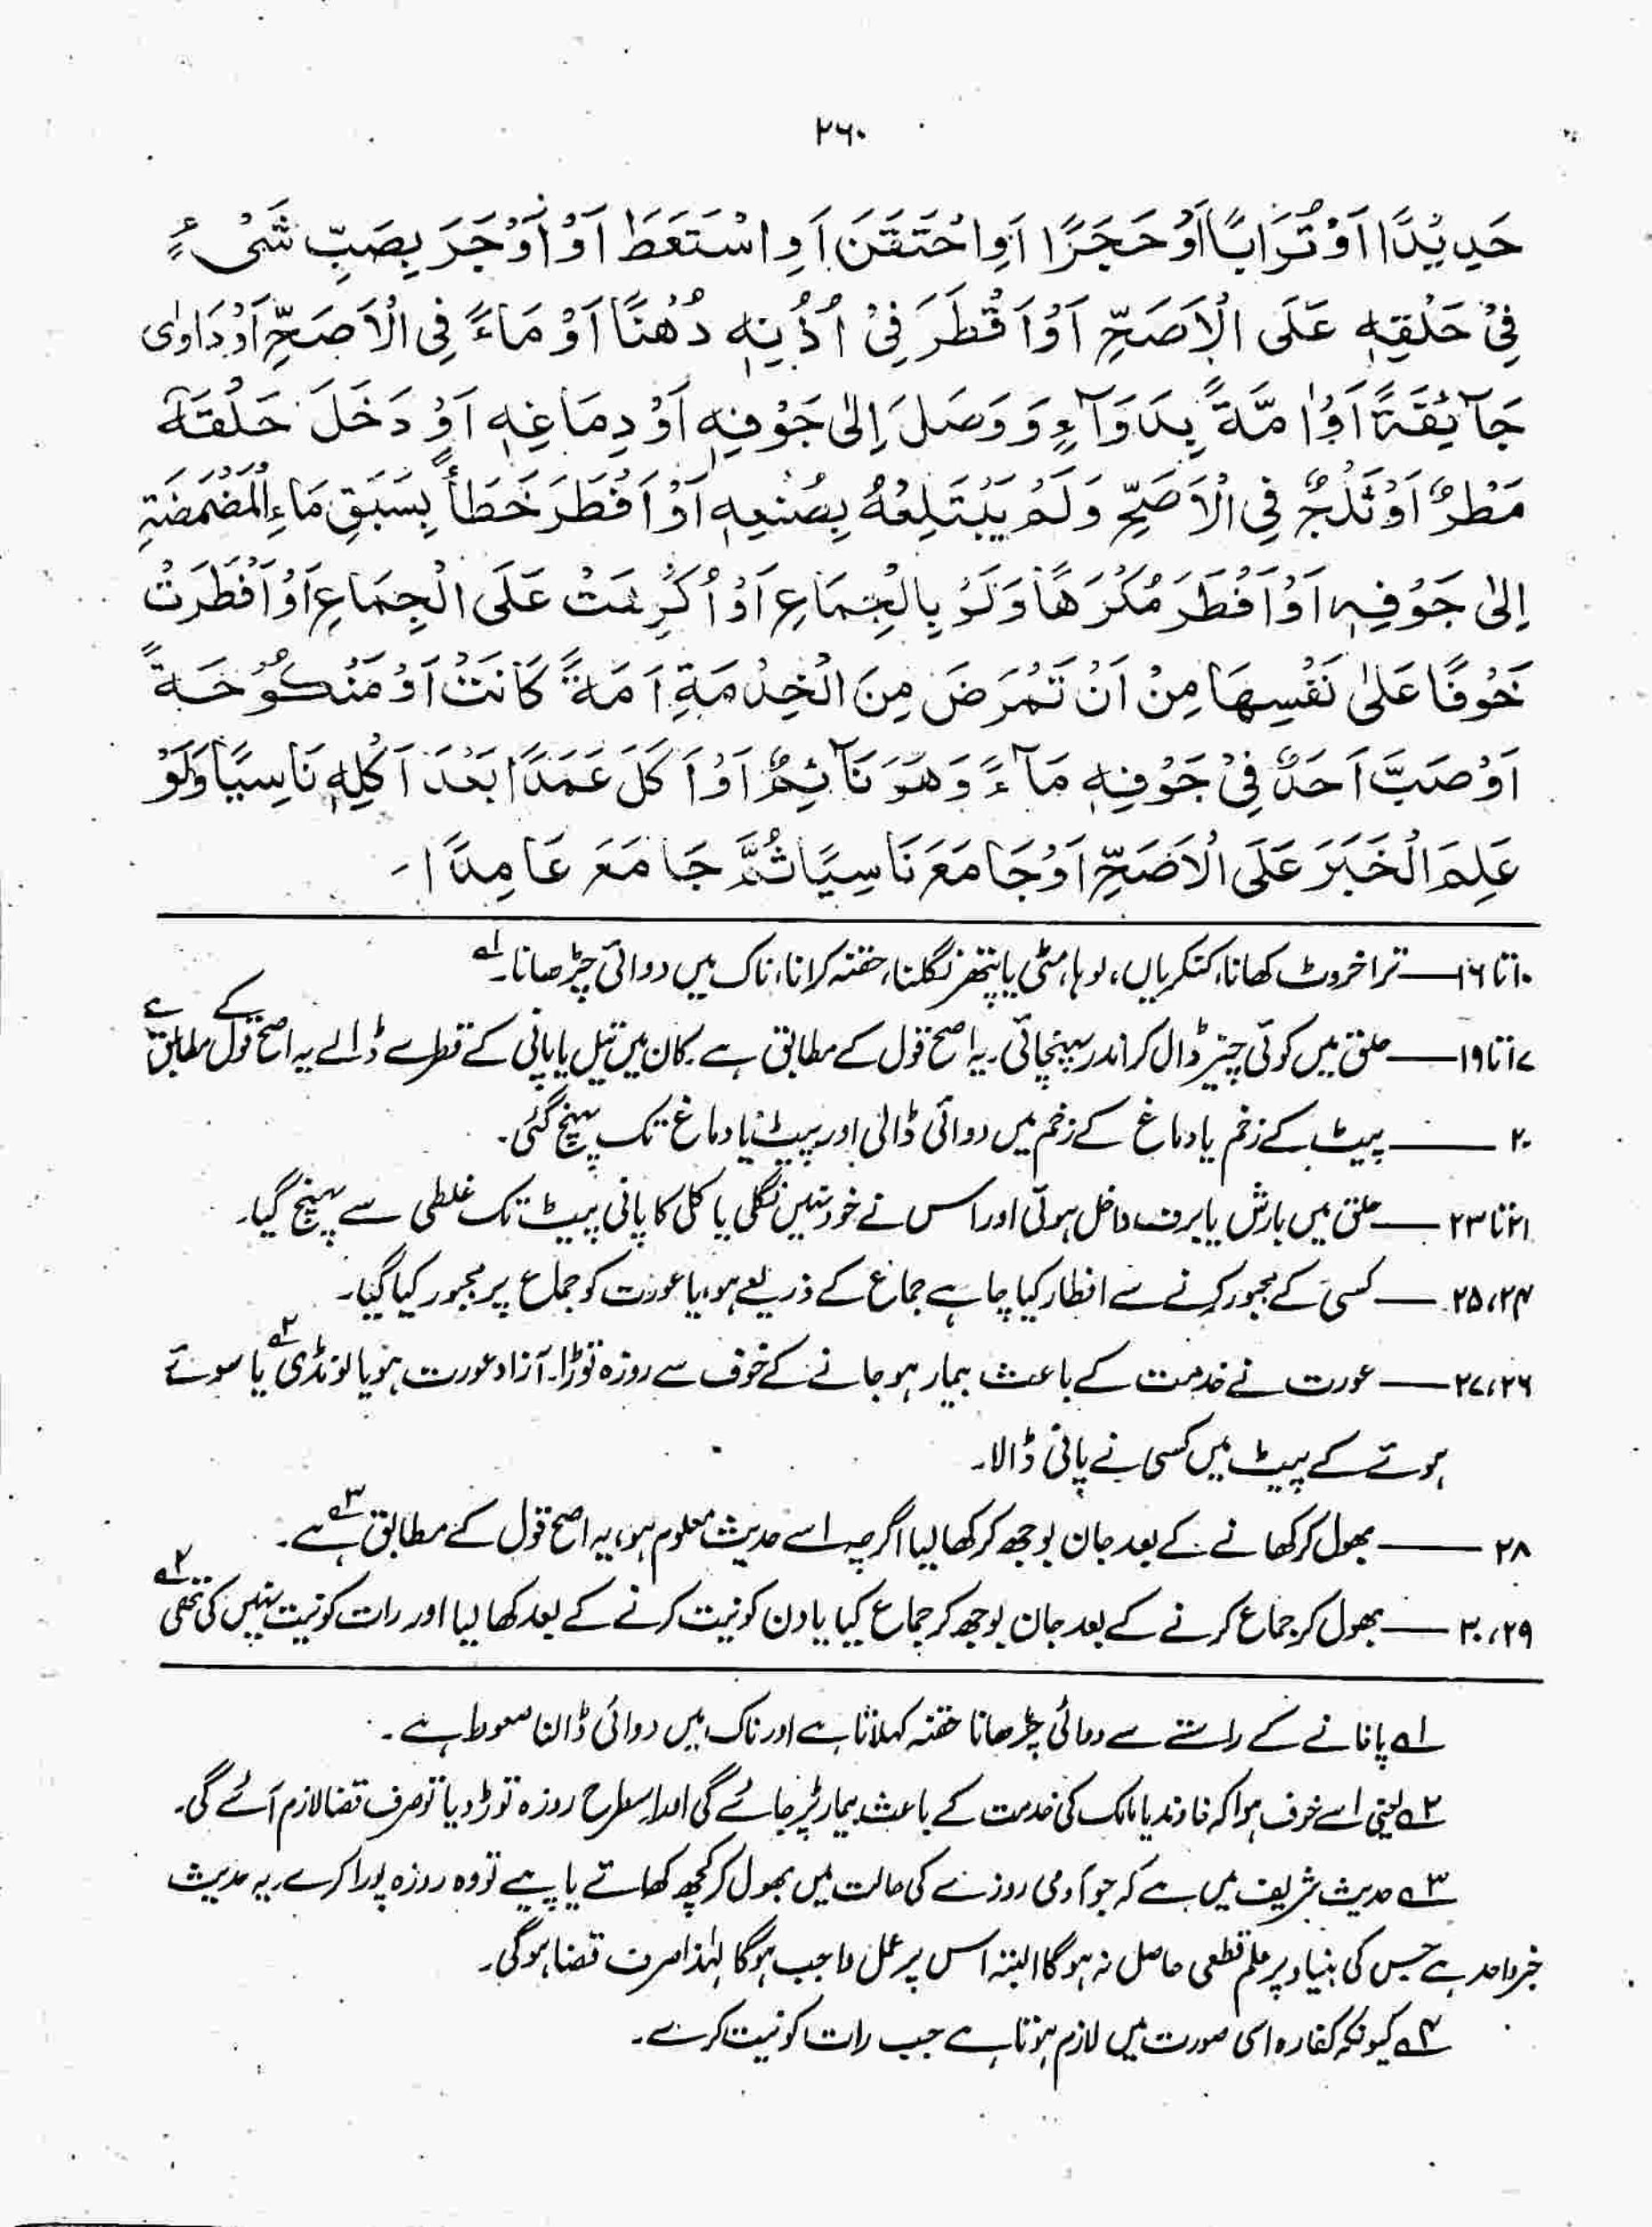 ۲۶۰
حَدِيْدًا اَوْ تُرَابًا اَوْ حَجَرًا اَوِ احْتَقَنَ اَوِ اسْتَعَطَ اَوْ اَوْجَرَ بِصَبِّ شَىْءٍ
فِىْ حَلْقِهٖ عَلَى الْاَصَحِّ اَوْ اَقْطَرَ فِىْ اُذُنِهٖ دُهْنًا اَوْ مَاءً فِى الْاَصَحِّ اَوْ دَاوٰى
جَآئِفَةً اَوْ اٰمَّةً بِدَوَآءٍ وَ وَصَلَ اِلٰى جَوْفِهٖ اَوْ دِمَاغِهٖ اَوْ دَخَلَ حَلْقَهٗ
مَطْرٌ اَوْ ثَلْجٌ فِى الْاَصَحِّ وَلَمْ يَبْتَلِعْهُ بِصُنْعِهٖ اَوْ اَفْطَرَ خَطَأً بِسَبَقِ مَاءِ الْمَضْمَضَةِ
اِلٰى جَوْفِهٖ اَوْ اَفْطَرَ مُكْرَهًا وَلَوْ بِالْجِمَاعِ اَوْ اُكْرِهَتْ عَلَى الْجِمَاعِ اَوْ اَفْطَرَتْ
خَوْفًا عَلٰى نَفْسِهَا مِنْ اَنْ تَمْرَضَ مِنَ الْخِدْمَةِ اَمَةً كَانَتْ اَوْ مَنْكُوْحَةً
اَوْ صَبَّ اَحَدٌ فِىْ جَوْفِهٖ مَآءً وَهُوَ نَآئِمٌ اَوْ اَكَلَ عَمَدًا بَعْدَ اَكْلِهٖ نَاسِيًا وَلَوْ
عَلِمَ الْخَبَرَ عَلَى الْاَصَحِّ اَوْ جَامَعَ نَاسِيًا ثُمَّ جَامَعَ عَامِدًا۔
۱۰ تا ۱۶ — تر اخروٹ کھانا، کنکریاں، لوہا، مٹی یا پتھر نگلنا، حقنہ کرانا، ناک میں دوائی چڑھانا۔ ۱؎
۱۷ تا ۱۹ — حلق میں کوئی چیز ڈال کر اندر پہنچائی۔ یہ اصح قول کے مطابق ہے۔ کان میں تیل یا پانی کے قطرے ڈالے یہ اصح قول کے مطابق ہے
۲۰ — پیٹ کے زخم یا دماغ کے زخم میں دوائی ڈالی اور پیٹ یا دماغ تک پہنچ گئی۔
۲۱ تا ۲۳ — حلق میں بارش یا برف داخل ہوئی اور اس نے خود نہیں نگلی یا کلی کا پانی پیٹ تک غلطی سے پہنچ گیا۔
۲۴، ۲۵ — کسی کے مجبور کرنے سے افطار کیا چاہے جماع کے ذریعے ہو، یا عورت کو جماع پر مجبور کیا گیا۔
۲۶، ۲۷ — عورت نے خدمت کے باعث بیمار ہو جانے کے خوف سے روزہ توڑا۔ آزاد عورت ہو یا لونڈی ۲؎ یا سوئے
ہوئے کے پیٹ میں کسی نے پانی ڈالا۔
۲۸ — بھول کر کھانے کے بعد جان بوجھ کر کھا لیا اگرچہ اسے حدیث معلوم ہو، یہ اصح قول کے مطابق ۳؎ ہے۔
۲۹، ۳۰ — بھول کر جماع کرنے کے بعد جان بوجھ کر جماع کیا یا دن کو نیت کرنے کے بعد کھا لیا اور رات کو نیت نہیں کی تھی ۴؎
۱؎ پاخانے کے راستے سے دوائی چڑھانا حقنہ کہلاتا ہے اور ناک میں دوائی ڈالنا سعوط ہے۔
۲؎ یعنی اسے خوف ہوا کہ خاوند یا مالک کی خدمت کے باعث بیمار پڑ جائے گی اور اسطرح روزہ توڑ دیا تو صرف قضا لازم آئے گی۔
۳؎ حدیث شریف میں ہے کہ جو آدمی روزے کی حالت میں بھول کر کچھ کھائے یا پیے تو وہ روزہ پورا کرے۔ یہ حدیث
خبر واحد ہے جس کی بنیاد پر علم قطعی حاصل نہ ہوگا البتہ اس پر عمل واجب ہوگا لہٰذا صرف قضا ہوگی۔
۴؎ کیونکہ کفارہ اسی صورت میں لازم ہوتا ہے جب رات کو نیت کرے۔